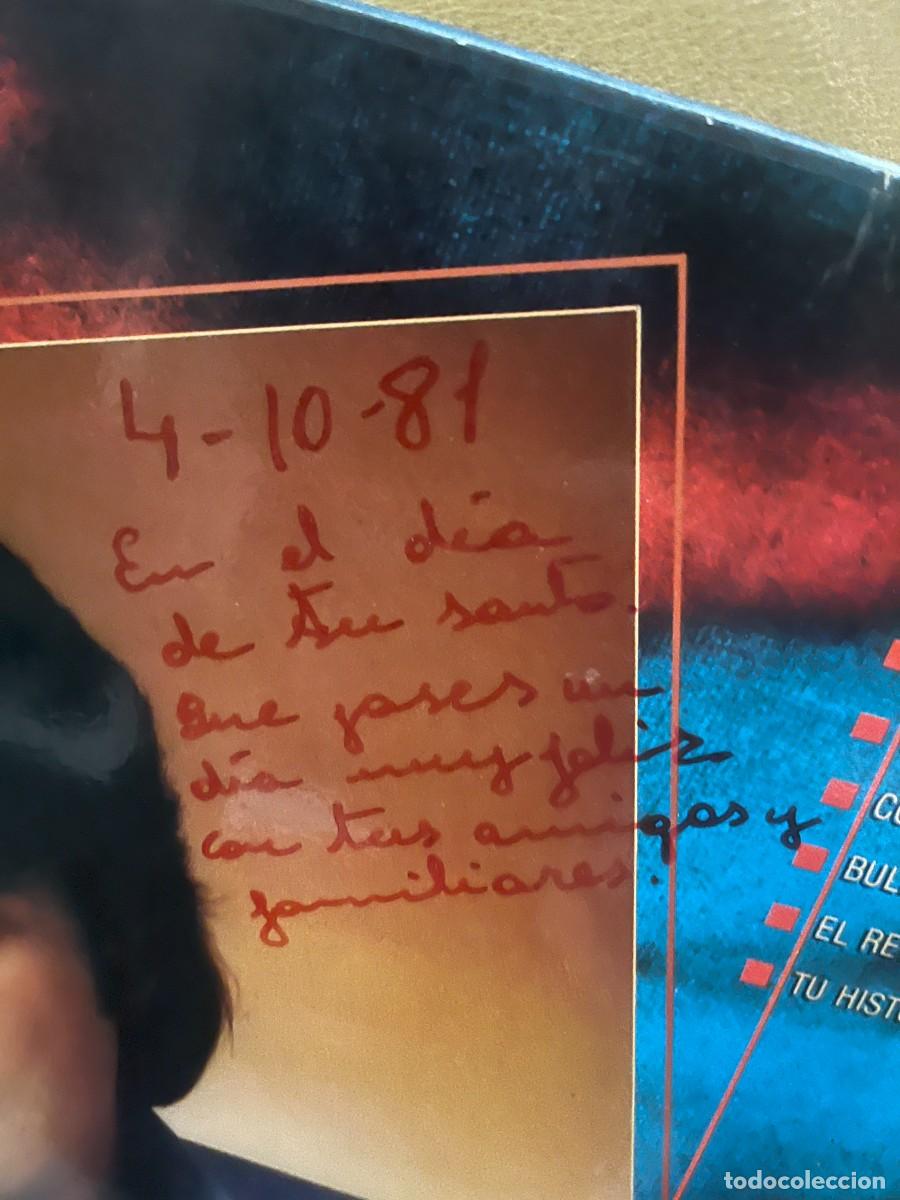 4-10-81
En el día
de tu santo.
Que pases un
día muy feliz
con tus amigas y
familiares.
BUL
EL RE
TU HIST
todocoleccion